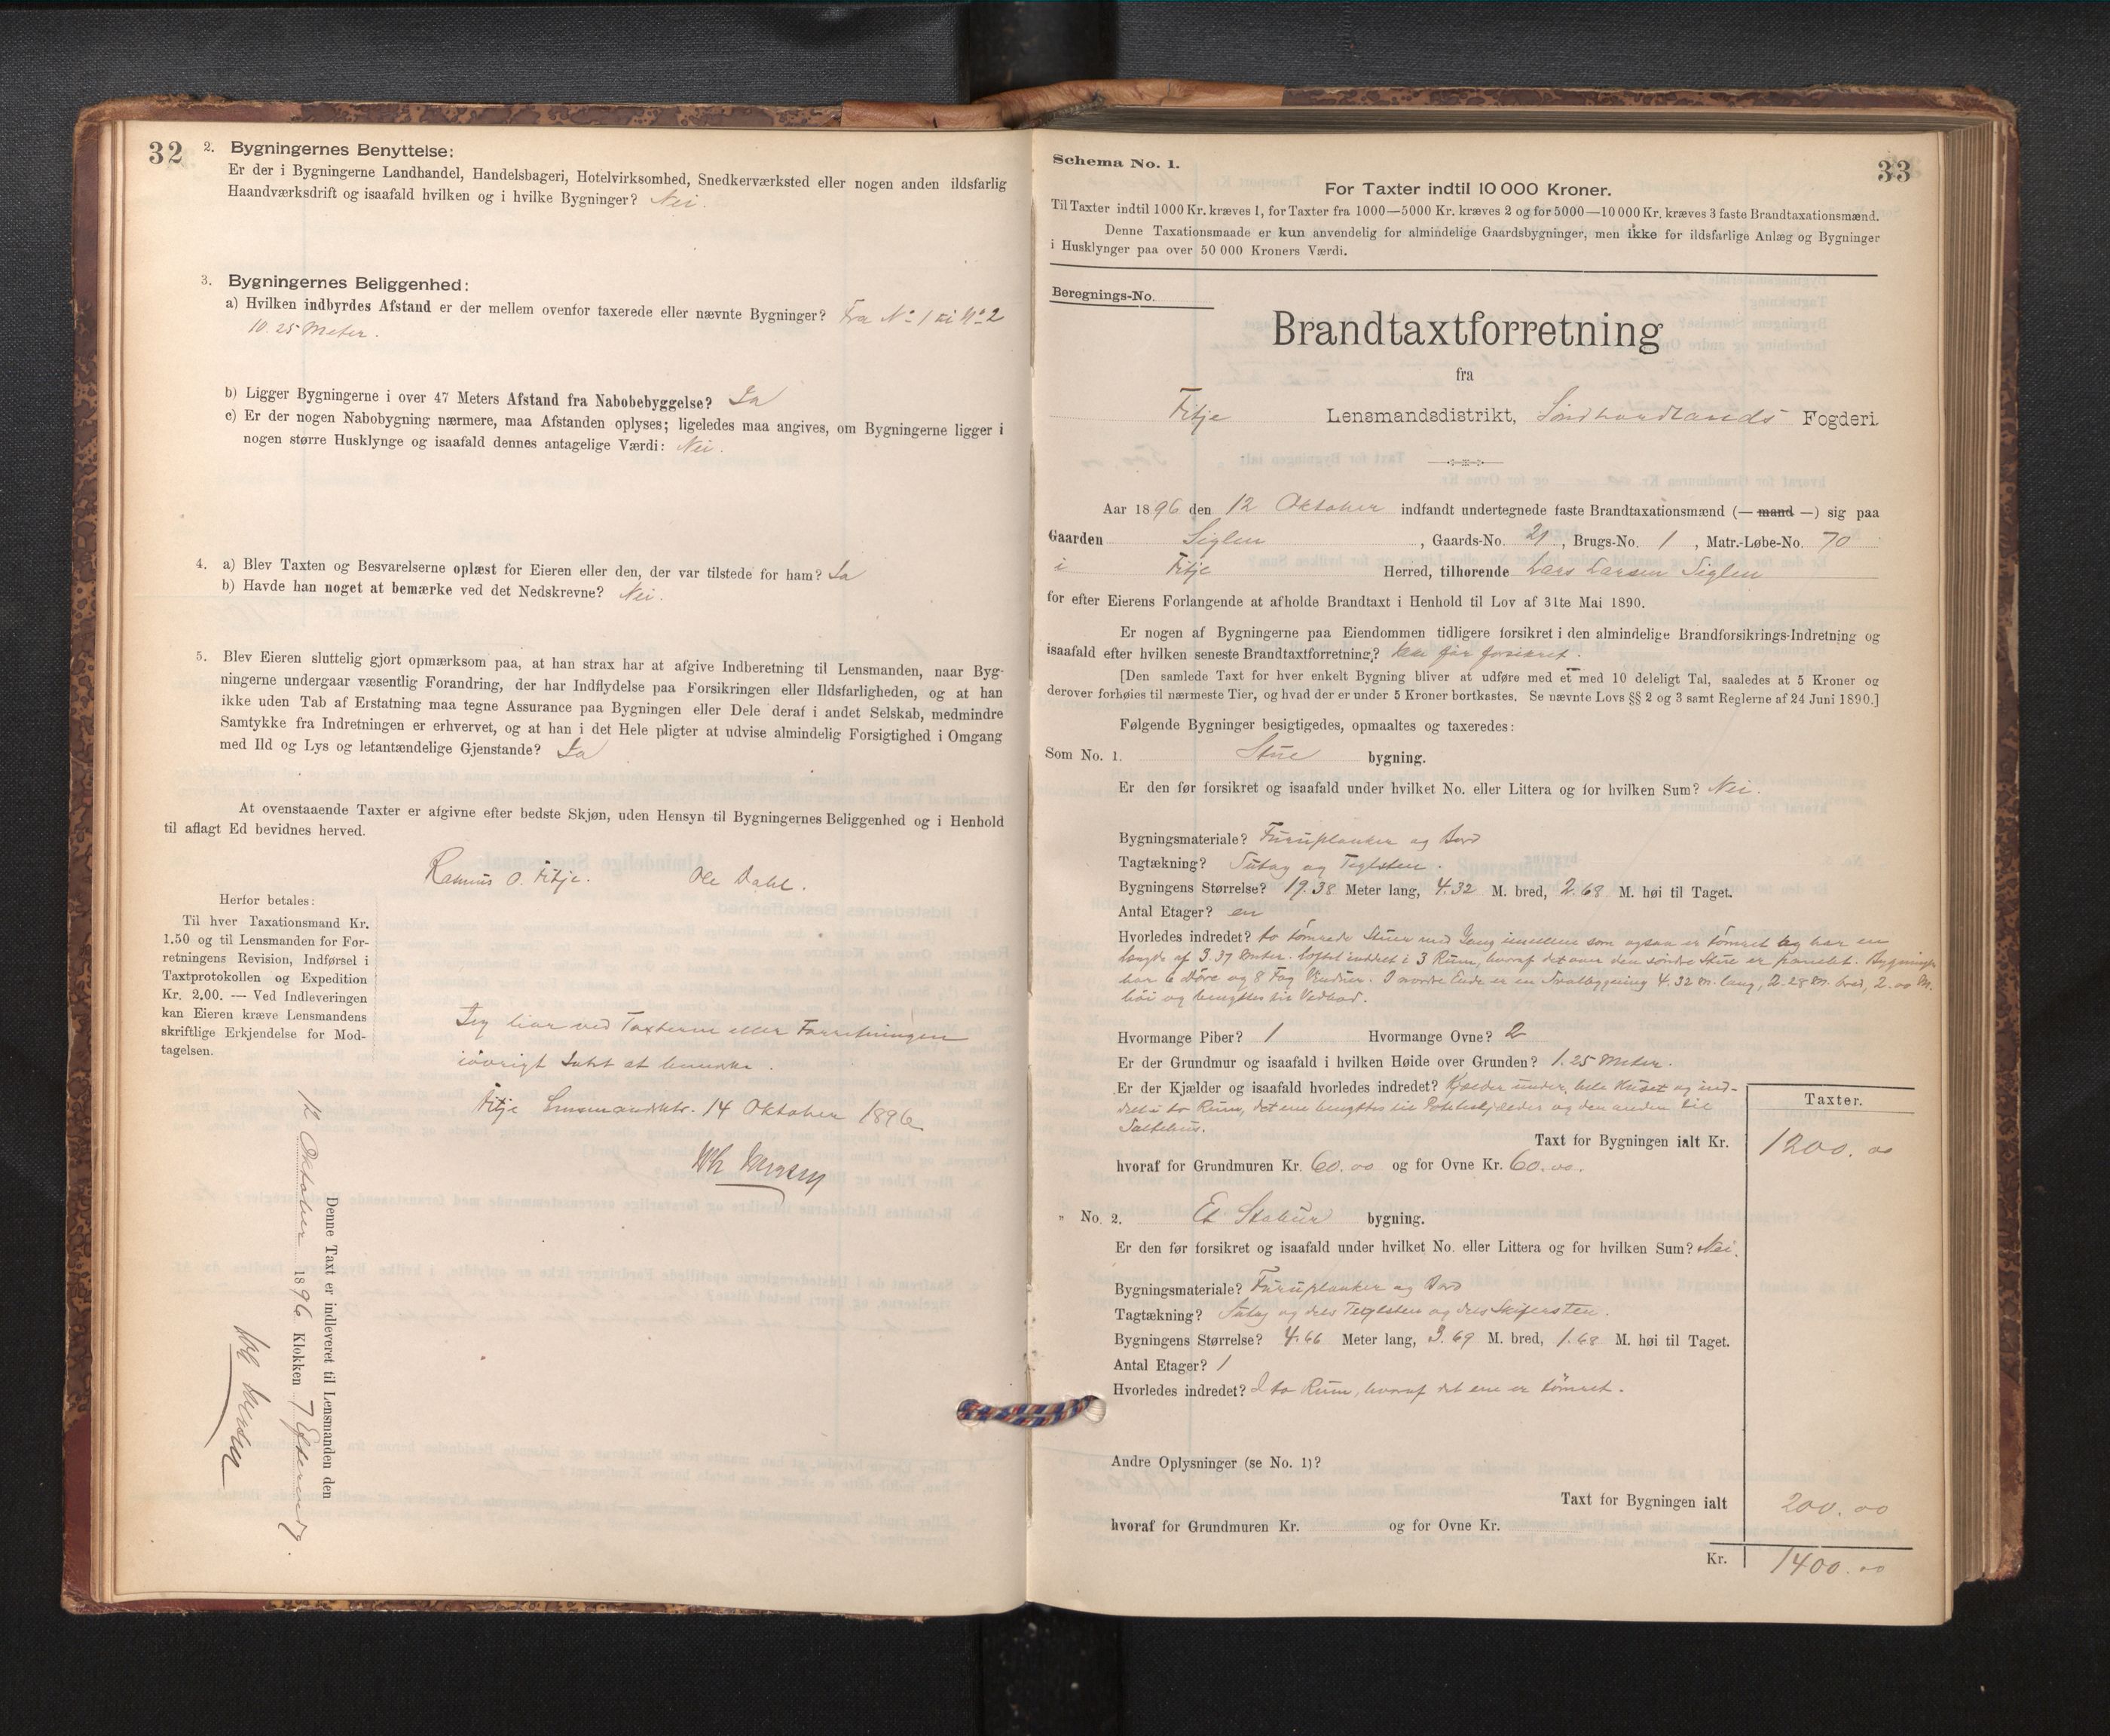 32
2. Bygningernes Benyttelse:
Er der i Bygningerne Landhandel, Handelsbageri, Hotelvirksomhed, Snedkerværksted eller nogen anden ildsfarlig
Haandværksdrift og isaafald hvilken og i hvilke Bygninger? Nei.
3. Bygningernes Beliggenhed:
a) Hvilken indbyrdes Afstand er der mellem ovenfor taxerede eller nævnte Bygninger? Fra No 1 til No 2
10.25 Meter.
b) Ligger Bygningerne i over 47 Meters Afstand fra Nabobebyggelse? Ja
c) Er der nogen Nabobygning nærmere, maa Afstanden oplyses; ligeledes maa angives, om Bygningerne ligger i
nogen større Husklynge og isaafald dennes antagelige Værdi: Nei.
4. a) Blev Taxten og Besvarelserne oplæst for Eieren eller den, der var tilstede for ham? Ja
b) Havde han noget at bemærke ved det Nedskrevne? Nei.
5. Blev Eieren sluttelig gjort opmærksom paa, at han strax har at afgive Indberetning til Lensmanden, naar Byg-
ningerne undergaar væsentlig Forandring, der har Indflydelse paa Forsikringen eller Ildsfarligheden, og at han
ikke uden Tab af Erstatning maa tegne Assurance paa Bygningen eller Dele deraf i andet Selskab, medmindre
Samtykke fra Indretningen er erhvervet, og at han i det Hele pligter at udvise almindelig Forsigtighed i Omgang
med Ild og Lys og letantændelige Gjenstande? Ja
At ovenstaaende Taxter er afgivne efter bedste Skjøn, uden Hensyn til Bygningernes Beliggenhed og i Henhold
til aflagt Ed bevidnes herved.
Rasmus O. Fitje. Ole Dahl.
Herfor betales:
Til hver Taxationsmand Kr.
1.50 og til Lensmanden for For-
retningens Revision, Indførsel i
Taxtprotokollen og Expedition
Kr. 2.00. — Ved Indleveringen
kan Eieren kræve Lensmandens
skriftlige Erkjendelse for Mod-
tagelsen.
Jeg har ved Taxterne eller Forretningen
iøvrigt Intet at bemærke.
Fitje Lensmandsktr. 14 Oktober 1896
Denne Taxt er indleveret til Lensmanden den
12 Oktober 1896 Klokken 7 Eftermd.
33
Schema No. 1.
For Taxter indtil 10 000 Kroner.
Til Taxter indtil 1000 Kr. kræves 1, for Taxter fra 1000—5000 Kr. kræves 2 og for 5000—10 000 Kr. kræves 3 faste Brandtaxationsmænd.
Denne Taxationsmaade er kun anvendelig for almindelige Gaardsbygninger, men ikke for ildsfarlige Anlæg og Bygninger
i Husklynger paa over 50 000 Kroners Værdi.
Beregnings-No.
Brandtaxtforretning
fra
Fitje Lensmandsdistrikt, Søndhordlands Fogderi.
Aar 1896 den 12 Oktober indfandt undertegnede faste Brandtaxationsmænd (— mand —) sig paa
Gaarden Siglen, Gaards-No. 21, Brugs-No. 1, Matr.-Løbe-No. 70
i Fitje Herred, tilhørende Lars Larsen Siglen
for efter Eierens Forlangende at afholde Brandtaxt i Henhold til Lov af 31te Mai 1890.
Er nogen af Bygningerne paa Eiendommen tidligere forsikret i den almindelige Brandforsikrings-Indretning og
isaafald efter hvilken seneste Brandtaxtforretning? Ikke før forsikret.
[Den samlede Taxt for hver enkelt Bygning bliver at udføre med et med 10 deleligt Tal, saaledes at 5 Kroner og
derover forhøies til nærmeste Tier, og hvad der er under 5 Kroner bortkastes. Se nævnte Lovs §§ 2 og 3 samt Reglerne af 24 Juni 1890.]
Følgende Bygninger besigtigedes, opmaaltes og taxeredes:
Som No. 1. Stue bygning.
Er den før forsikret og isaafald under hvilket No. eller Littera og for hvilken Sum? Nei.
Bygningsmateriale? Furuplanker og Bord
Tagtækning? Sutag og Teglsten.
Bygningens Størrelse? 19.38 Meter lang, 4.32 M. bred, 2.68 M. høi til Taget.
Antal Etager? en
Hvorledes indredet? to tømrede Stuer med Gang imellem som ogsaa er tømret og har en
Længde af 3.37 Meter. Loftet inddelt i 3 Rum, hvoraf det over den søndre Stue er panelet. Bygningen
har 6 Døre og 8 Fag Vinduer. I nordre Ende er en Svalbygning 4.32 M. lang, 2.28 M. bred, 2.00 M.
høi og benyttes til Vedbod.
Hvormange Piber? 1 Hvormange Ovne? 2
Er der Grundmur og isaafald i hvilken Høide over Grunden? 1.25 Meter.
Er der Kjælder og isaafald hvorledes indredet? Kjælder under hele Huset og ind-
delt i to Rum, det ene benyttes til Potetkjælder og den anden til
Saltebus.
Taxter.
Taxt for Bygningen ialt Kr. 1200.00
hvoraf for Grundmuren Kr. 60.00 og for Ovne Kr. 60.00.
" No. 2. Et Stabur bygning.
Er den før forsikret og isaafald under hvilket No. eller Littera og for hvilken Sum? Nei.
Bygningsmateriale? Furuplanker og Bord
Tagtækning? Sutag og dels Teglsten og dels Skifersten.
Bygningens Størrelse? 4.66 Meter lang, 3.69 M. bred, 1.68 M. høi til Taget.
Antal Etager? 1
Hvorledes indredet? I to Rum, hvoraf det ene er tømret.
Andre Oplysninger (se No. 1)?
Taxt for Bygningen ialt 200.00
hvoraf for Grundmuren Kr. og for Ovne Kr.
Kr. 1400.00